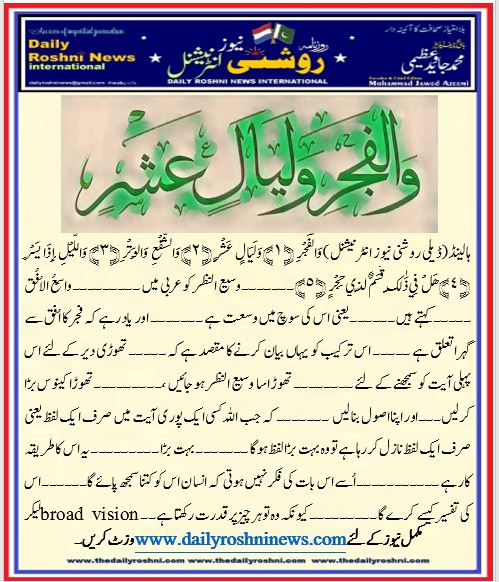 An icon of impartial journalism
Daily
Roshni News
international
dailyroshninews@gmail.com
روزنامہ
روشنی نیوز
انٹرنیشنل
DAILY ROSHNI NEWS INTERNATIONAL
بلا امتیاز صحافت کا آئینہ دار
محمد جاوید عظیمی
Founder & Chief Editor
Mohammad Jawed Azeemi
وَالْفَجْرِ وَلَيَالٍ عَشْرٍ
ہالینڈ(ڈیلی روشنی نیوز انٹرنیشنل) وَالْفَجْرِ ﴿١﴾ وَلَيَالٍ عَشْرٍ ﴿٢﴾ وَالشَّفْعِ وَالْوَتْرِ ﴿٣﴾ وَاللَّيْلِ إِذَا يَسْرِ
﴿٤﴾ هَلْ فِي ذَٰلِكَ قَسَمٌ لِّذِي حِجْرٍ ﴿٥﴾ ------- وسیع النظر کو عربی میں --------- واسعُ الأفق
----- کہتے ہیں ------ یعنی اس کی سوچ میں وسعت ہے -------- اور یاد رہے کہ فجر کا افق سے
گہرا تعلق ہے ----- اس ترکیب کو یہاں بیان کرنے کا مقصد ہے کہ ----- تھوڑی دیر کے لئے اس
پہلی آیت کو سمجھنے کے لئے -------- تھوڑا سا وسیع النظر ہو جائیں، -------- تھوڑا کینوس بڑا
کرلیں --- اور اپنا اصول بنا لیں ------- کہ جب اللہ کسی ایک پوری آیت میں صرف ایک لفظ یعنی
صرف ایک لفظ نازل کر رہا ہے تو وہ بہت بڑا لفظ ہو گا ------- بہت بڑا --------- یہ اس کا طریقہ
کار ہے ---------- اُسے اس بات کی فکر نہیں ہوتی کہ انسان اس کو کتنا سمجھ پائے گا ------ اس
کی تفسیر کیسے کرے گا --------- کیونکہ وہ تو ہر چیز پر قدرت رکھتا ہے -- broad vision لیکر
مکمل نیوز کے لئے www.dailyroshninews.com وزٹ کریں۔
www.thedailyroshni.com www.thedailyroshni.com www.thedailyroshni.com